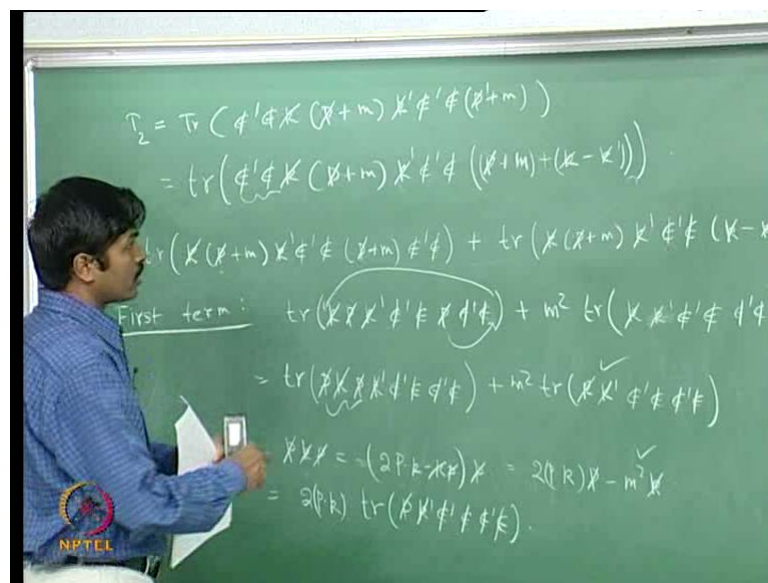 T₂ = Tr ( ε̸' ε̸ k̸ (p̸ + m) k̸' ε̸' ε̸ (p̸' + m) )
= tr ( ε̸' ε̸ k̸ (p̸ + m) k̸' ε̸' ε̸ ((p̸ + m) + (k̸ - k̸')) )
tr ( k̸ (p̸ + m) k̸' ε̸' ε̸ (p̸ + m) ε̸' ε̸ ) + tr ( k̸ (p̸ + m) k̸' ε̸' ε̸ (k̸ -
First term : tr ( k̸ p̸ k̸' ε̸' ε̸ p̸ ε̸' ε̸ ) + m² tr ( k̸ k̸' ε̸' ε̸ ε̸' ε̸
= tr ( p̸ k̸ p̸ k̸' ε̸' ε̸ ε̸' ε̸ ) + m² tr ( k̸ k̸' ε̸' ε̸ ε̸' ε̸ ) ✓
p̸ k̸ p̸ = (2p·k - k̸ p̸) p̸ = 2(p·k) p̸ - m² k̸ ✓
= 2(p·k) tr ( p̸ k̸' ε̸' ε̸ ε̸' ε̸ ) .
NPTEL